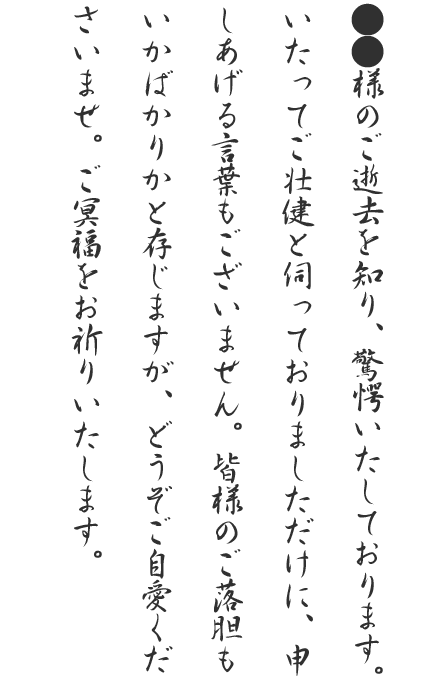 ●●様のご逝去を知り、驚愕いたしております。
いたってご壮健と伺っておりましただけに、申
しあげる言葉もございません。皆様のご落胆も
いかばかりかと存じますが、どうぞご自愛くだ
さいませ。ご冥福をお祈りいたします。